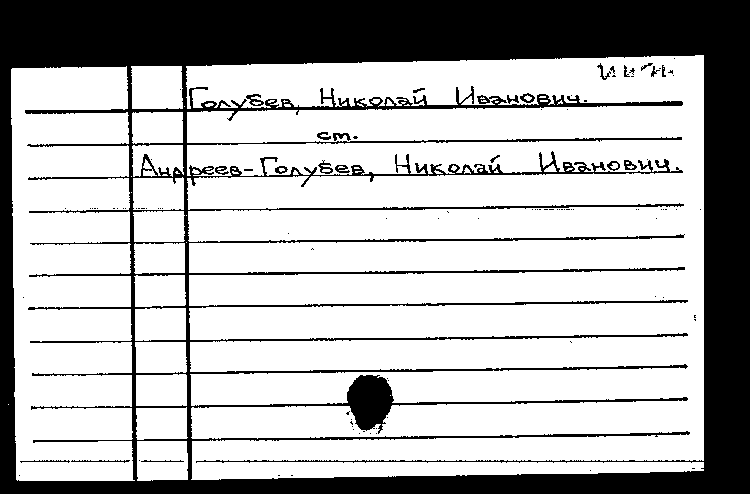 Голубев, Николай Иванович.
ст.
Андреев-Голубев, Николай Иванович.